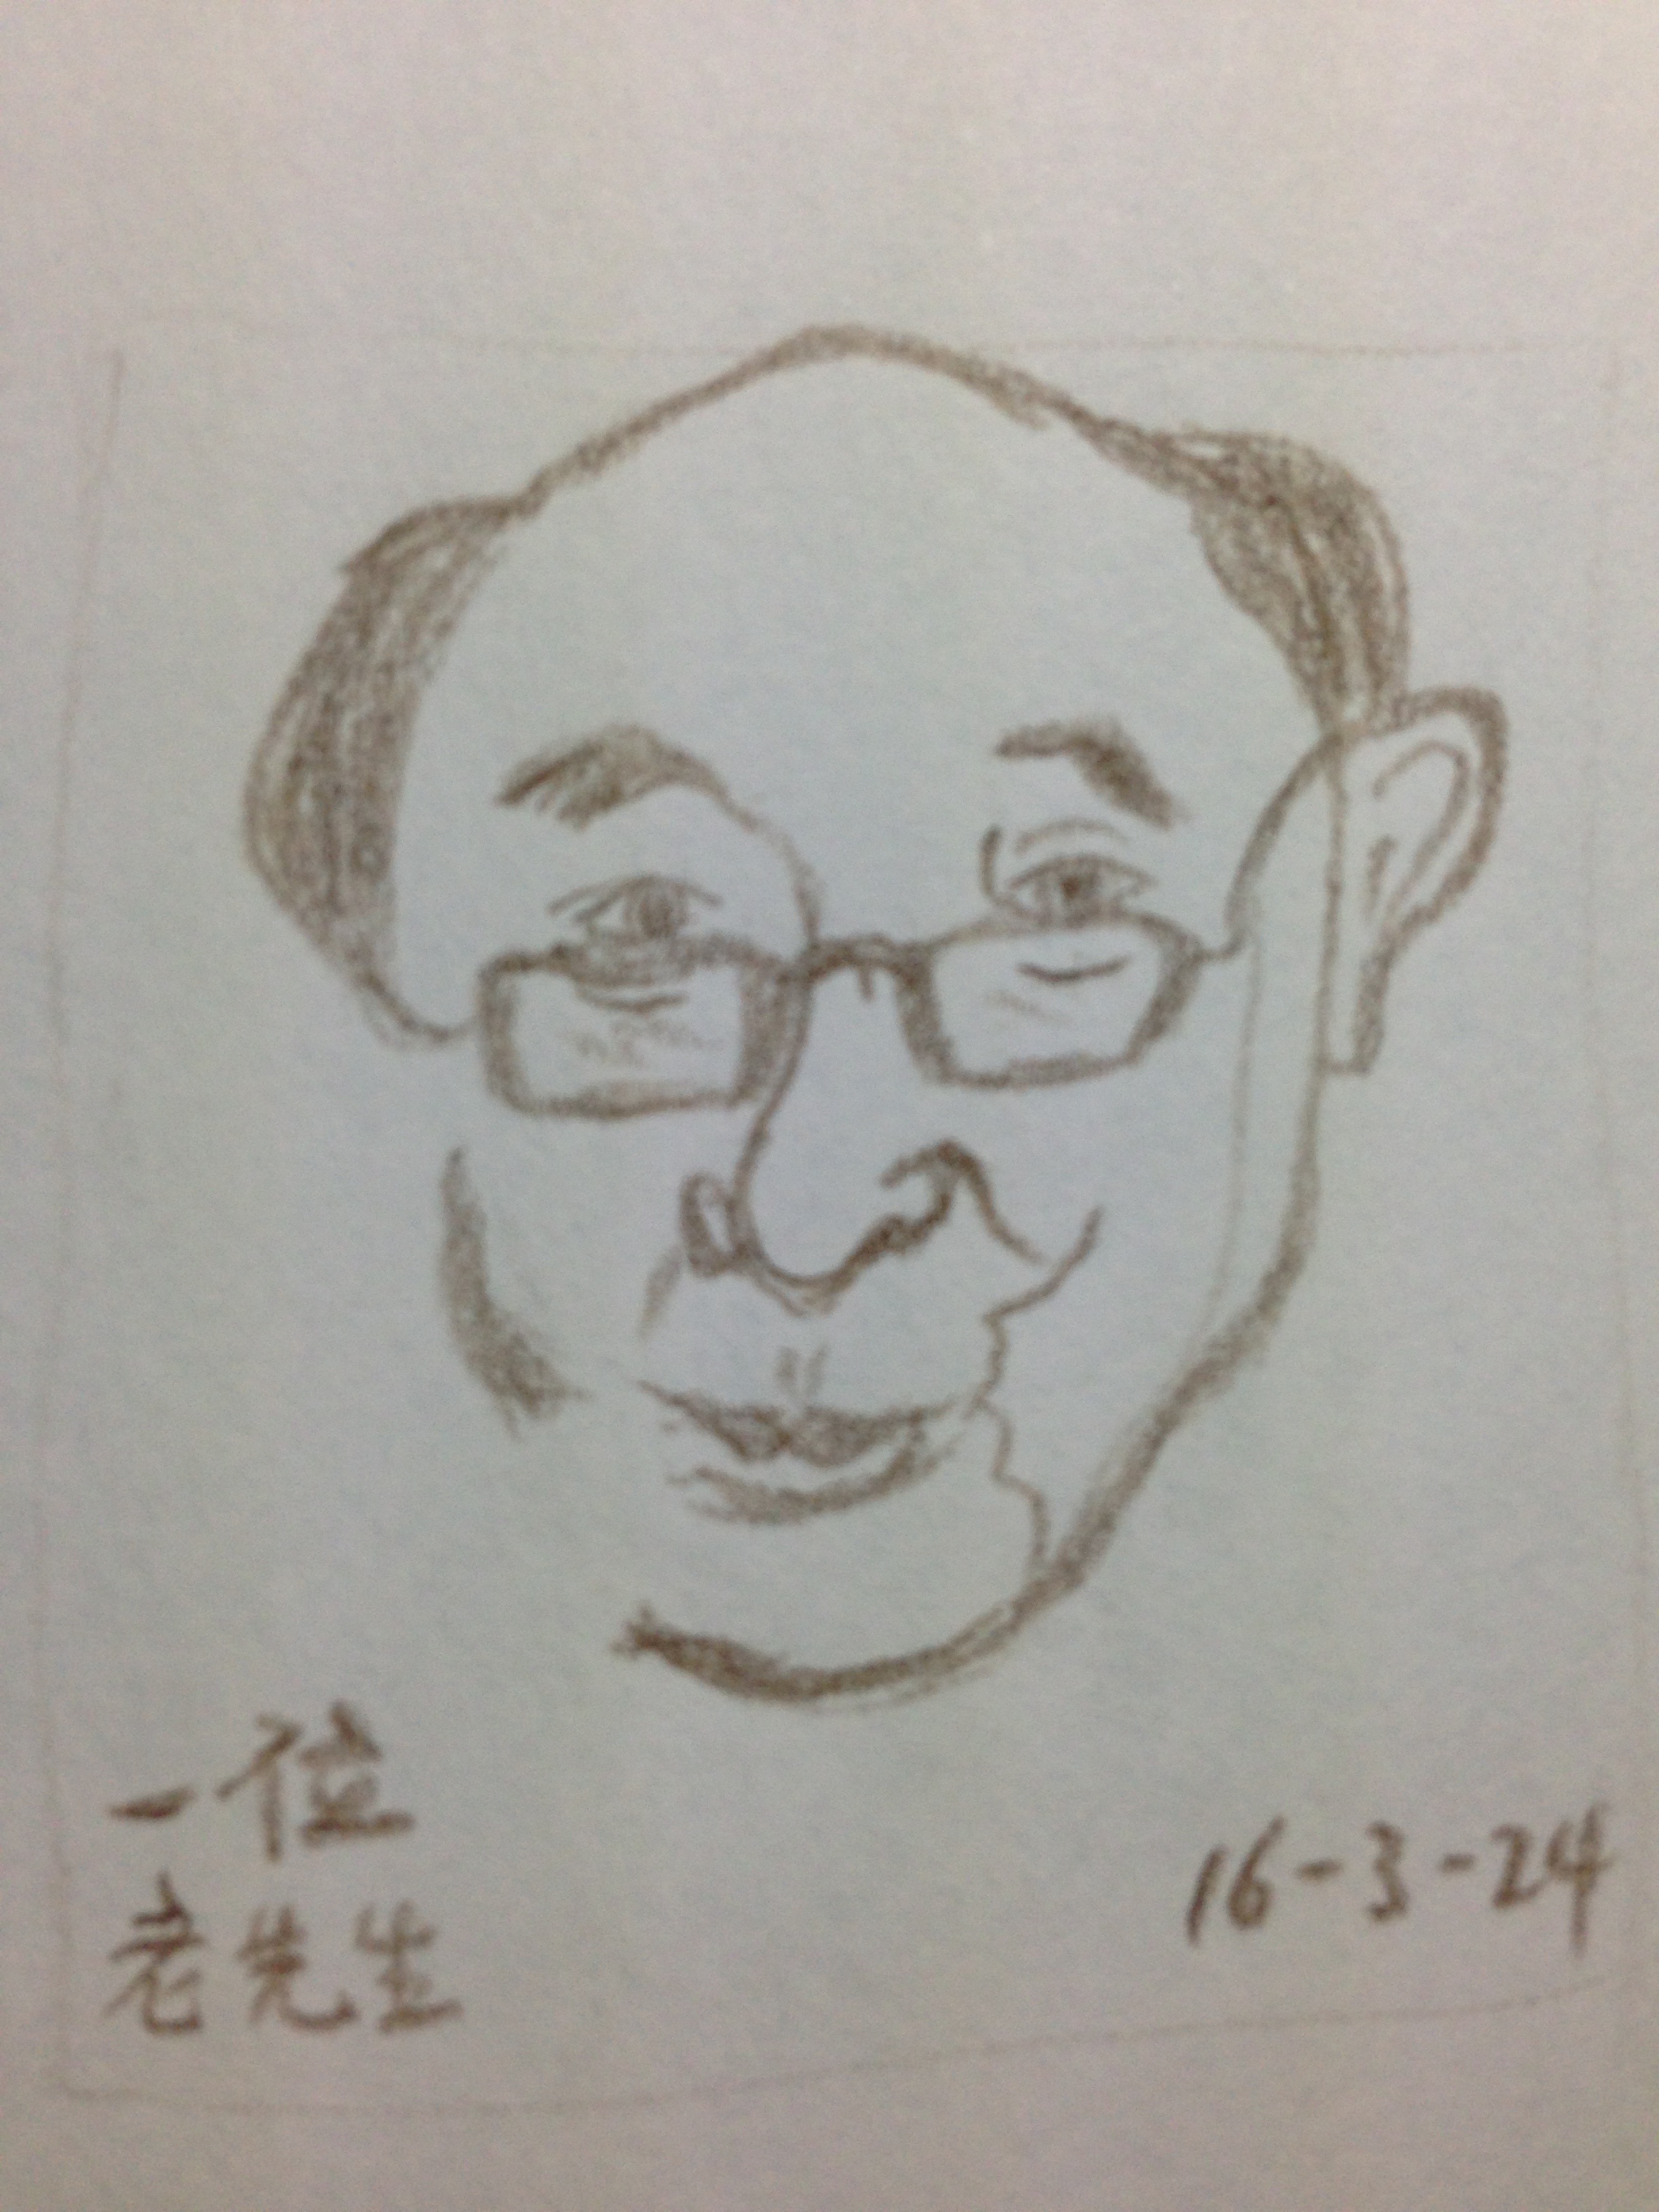 一位
老先生
16-3-24